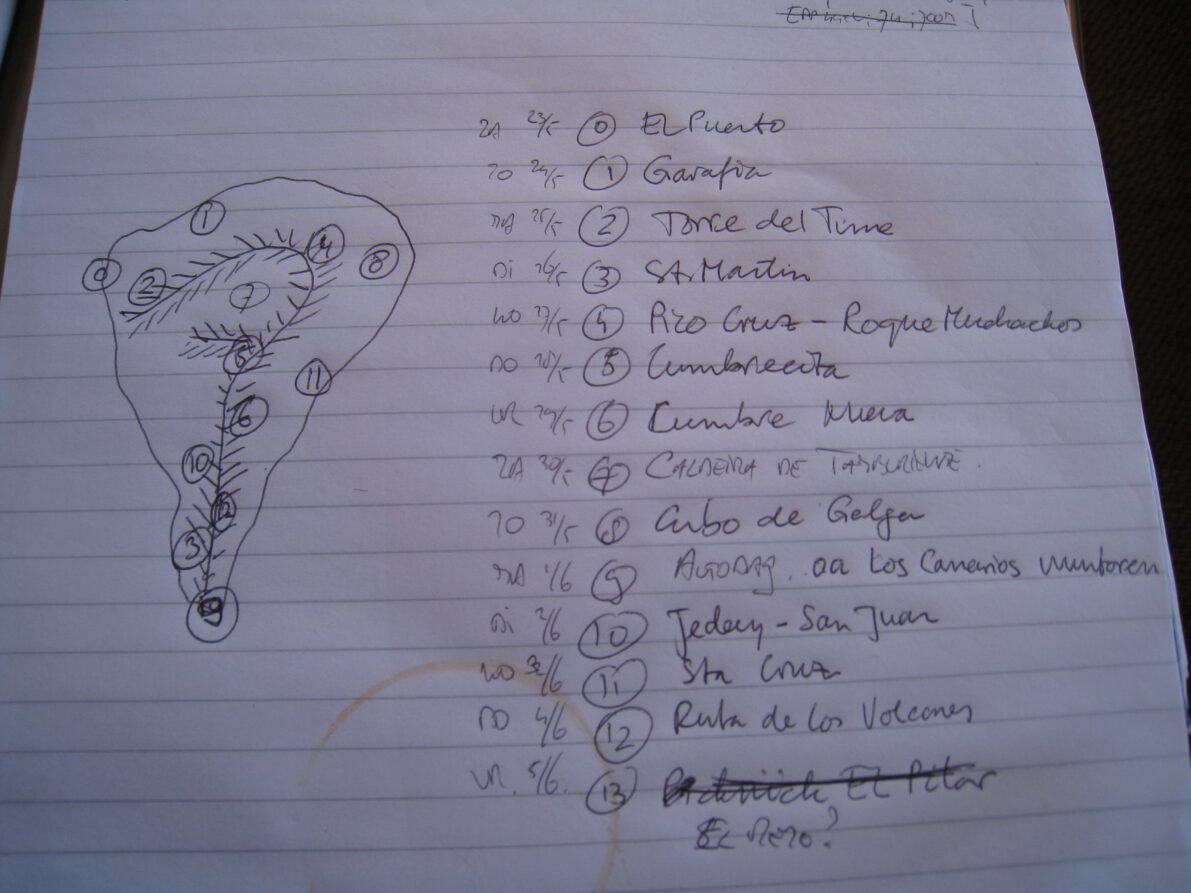 ZA 23/5 0 El Puerto
ZO 24/5 1 Garafia
MA 25/5 2 Torre del Time
DI 26/5 3 St. Martin
WO 27/5 4 Pizo Cruz - Roque Muchachos
DO 28/5 5 Cumbrecita
VR 29/5 6 Cumbre Nueva
ZA 30/5 7 CALDEIRA DE TABURIENTE.
ZO 31/5 8 Cubo de Galga
MA 1/6 9 AUTODAG. oa Los Canarios
DI 2/6 10 Jedey - San Juan
WO 3/6 11 Sta Cruz
DO 4/6 12 Ruta de los Volcanes
VR. 5/6. 13 El Pilar
1
4
0
2
8
7
5
11
6
10
12
3
9